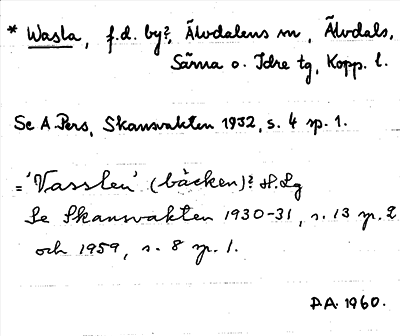 * Wasla, f.d. by?, Älvdalens sn, Älvdals,
Särna o. Idre tg, Kopp. l.
Se A. Pers, Skansvakten 1932, s. 4 sp. 1.
= 'Vasslen' (bäcken)? H. Lg
Se Skansvakten 1930-31, s. 13 sp. 2
och 1959, s. 8 sp. 1.
DA. 1960.